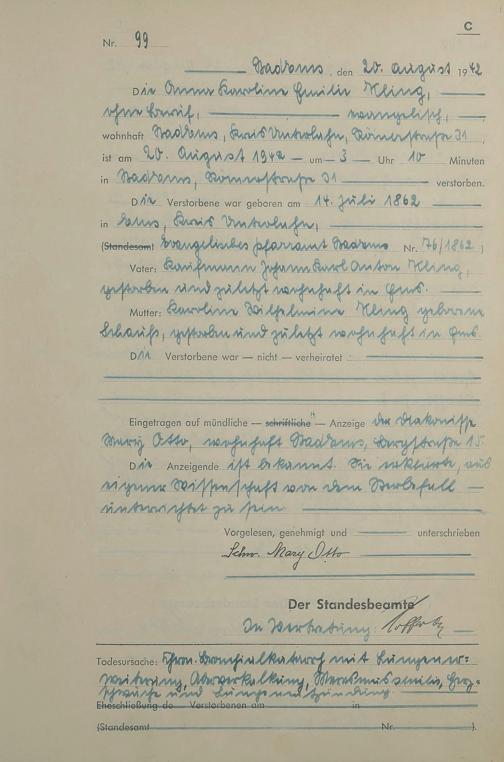 C
Nr. 99
Bad Ems, den 20. August 1942
Die Anna Karoline Emilie Kling,
ohne Beruf, evangelisch,
wohnhaft Bad Ems, Kreis Unterlahn, Römerstraße 31
ist am 20. August 1942 um 3 Uhr 10 Minuten
in Bad Ems, Römerstraße 31 verstorben.
Die Verstorbene war geboren am 14. Juli 1862
in Ems, Kreis Unterlahn,
(Standesamt Evangelisches Pfarramt Bad Ems Nr. 76/1862)
Vater: Kaufmann Johann Karl Anton Kling,
gestorben und zuletzt wohnhaft in Ems.
Mutter: Karoline Wilhelmine Kling geborene
Schauß, gestorben und zuletzt wohnhaft in Ems.
Die Verstorbene war — nicht — verheiratet
Eingetragen auf mündliche — schriftliche — Anzeige der Diakonisse
Mary Otto, wohnhaft Bad Ems, Bergstraße 15.
Die Anzeigende ist bekannt. Sie erklärte, aus
eigener Wissenschaft von dem Sterbefall
unterrichtet zu sein
Vorgelesen, genehmigt und unterschrieben
Schw. Mary Otto
Der Standesbeamte
In Vertretung:
Todesursache: Chron. Bronchialkatarrh mit Lungener-
weiterung, Aderverkalkung, Marasmus senilis, Herz-
schwäche und Lungenentzündung
Eheschließung de Verstorbenen am in
(Standesamt Nr. ).